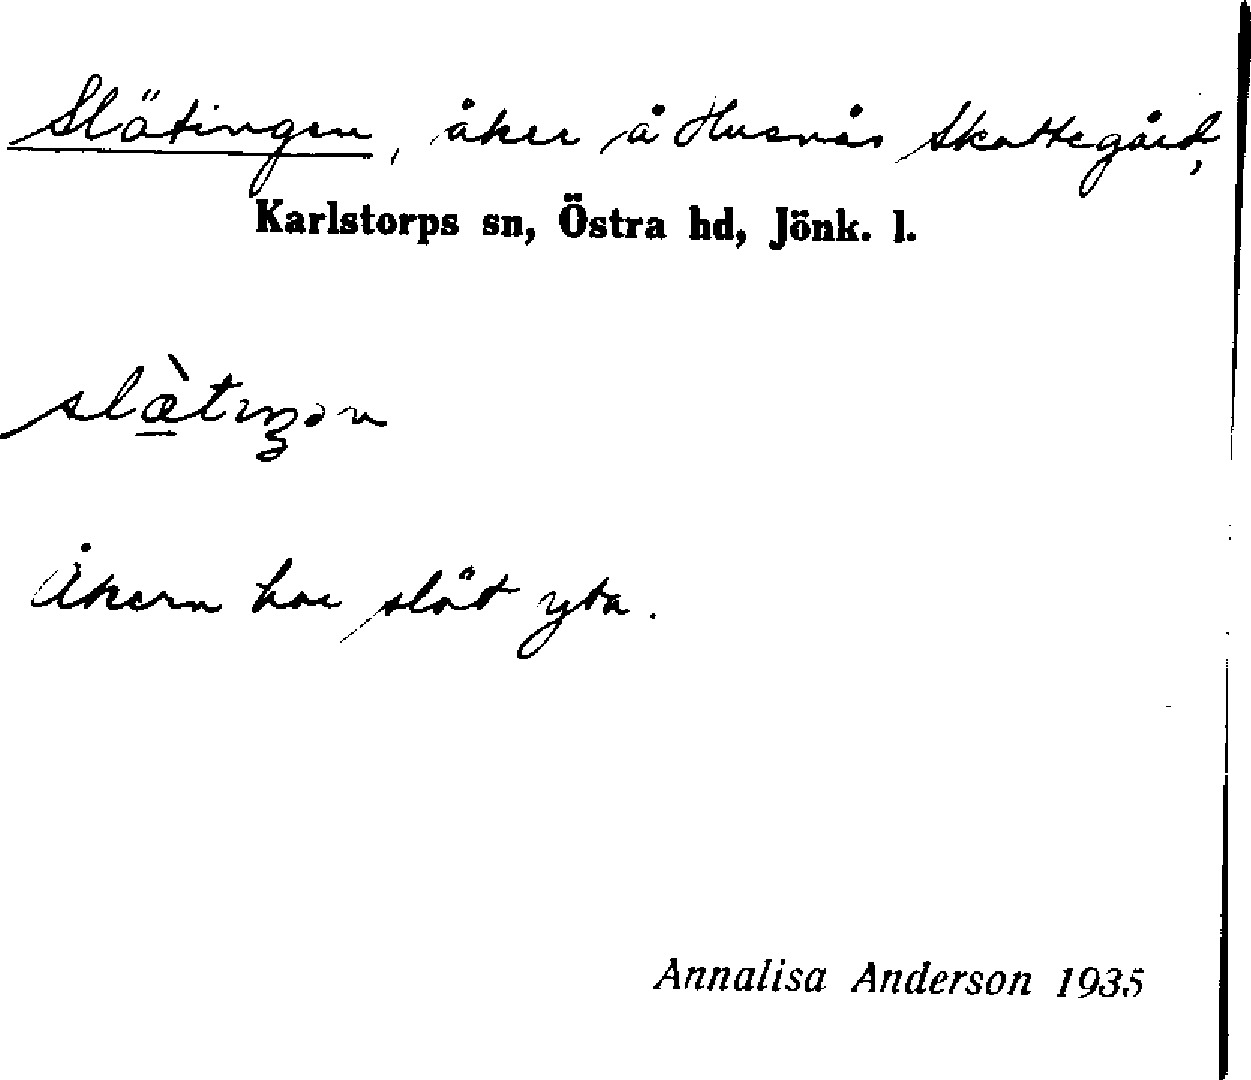 Slätingen, åker å Husnäs Skattegård,
Karlstorps sn, Östra hd, Jönk. l.
slæ̀tıŋən
Åkern har slät yta.
Annalisa Anderson 1935